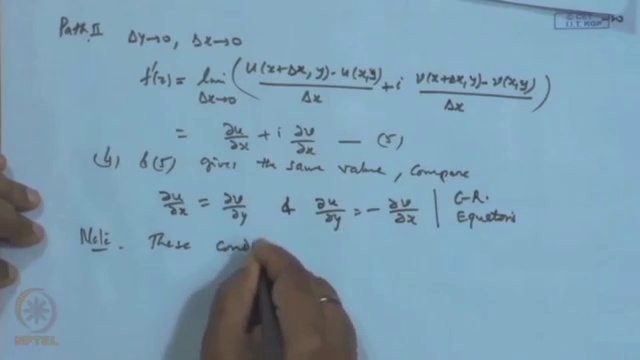 Path II Δy→0, Δx→0
f'(z) = lim Δx→0 ( (u(x+Δx, y) - u(x,y))/Δx + i (v(x+Δx, y) - v(x,y))/Δx )
= ∂u/∂x + i ∂v/∂x — (5)
(4) & (5) gives the same value, compare
∂u/∂x = ∂v/∂y & ∂u/∂y = - ∂v/∂x | C-R. Equations
Note. These cond
I.I.T. KGP
NPTEL